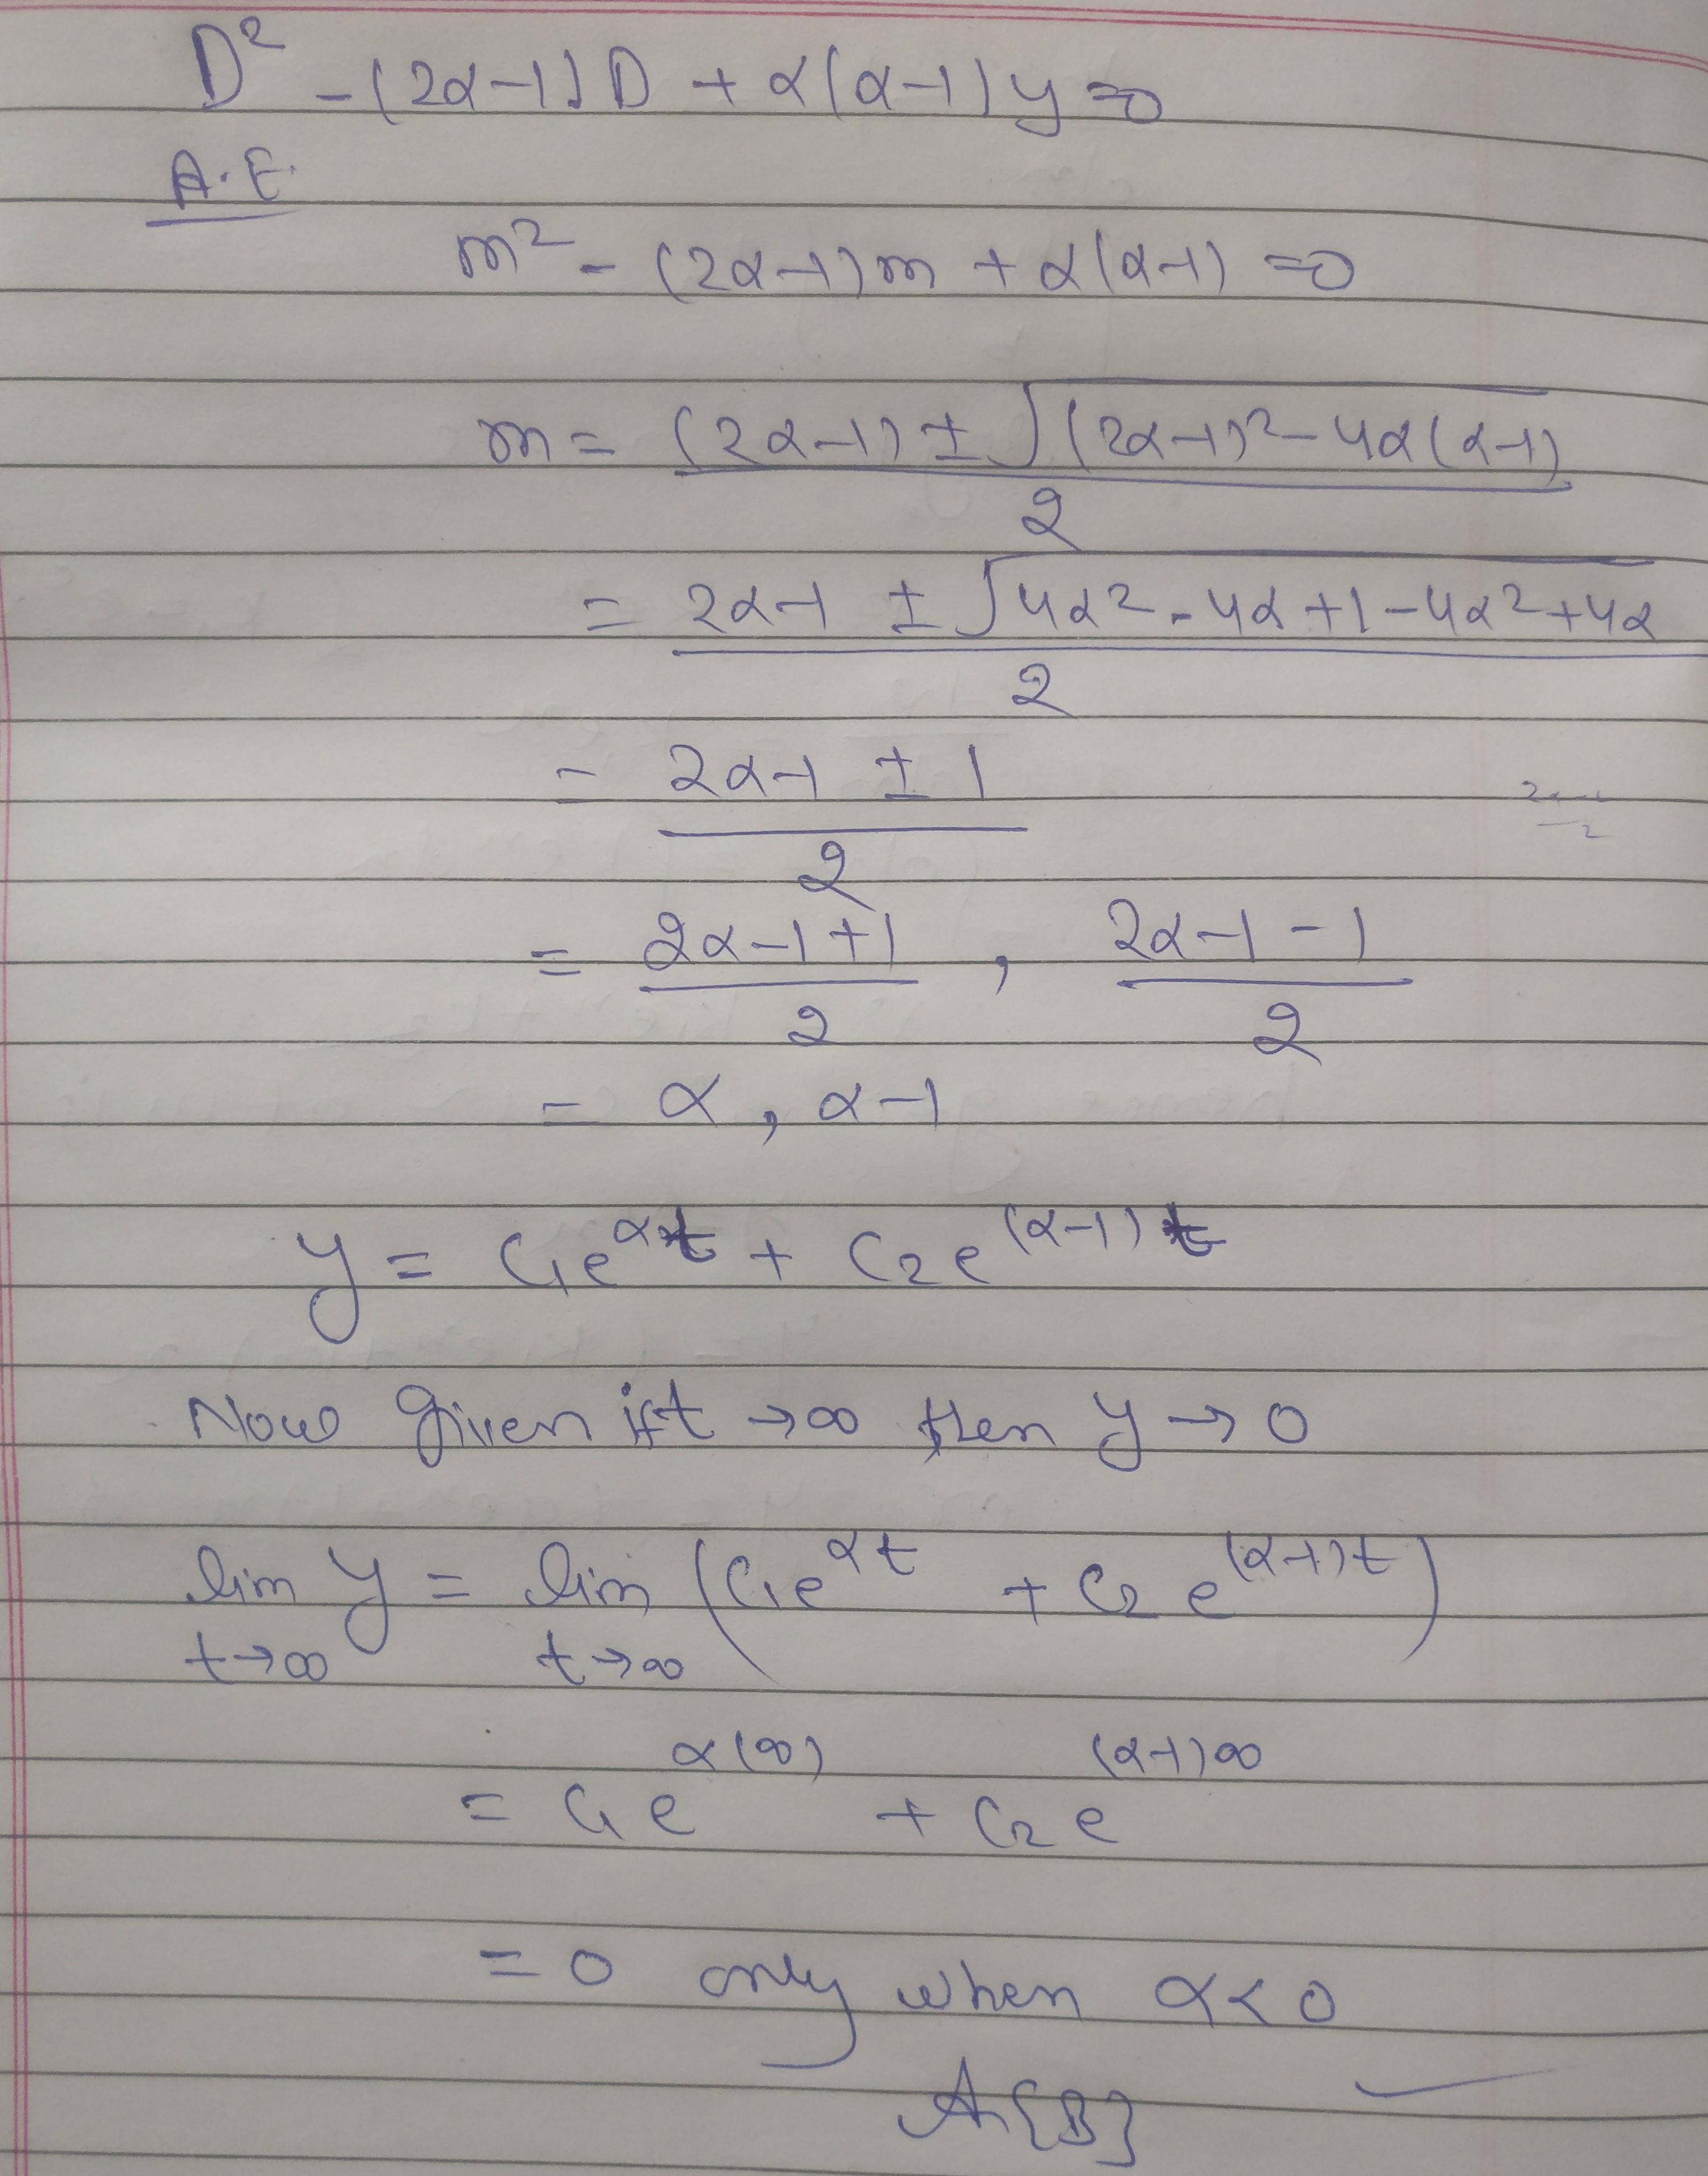 D² - (2α-1)D + α(α-1)y=0
A.E.
m² - (2α-1)m + α(α-1) =0
m = (2α-1) ± √(2α-1)² - 4α(α-1)
2
= 2α-1 ± √4α² - 4α +1 - 4α² + 4α
2
= 2α-1 ± 1
2
= 2α-1+1 , 2α-1-1
2 2
= α , α-1
y = C₁e^αt + C₂e^(α-1)t
Now given if t →∞ then y → 0
lim y = lim (C₁e^αt + C₂ e^(α-1)t)
t→∞ t→∞
= C₁e^α(∞) + C₂e^(α-1)∞
= 0 only when α<0
A{B}